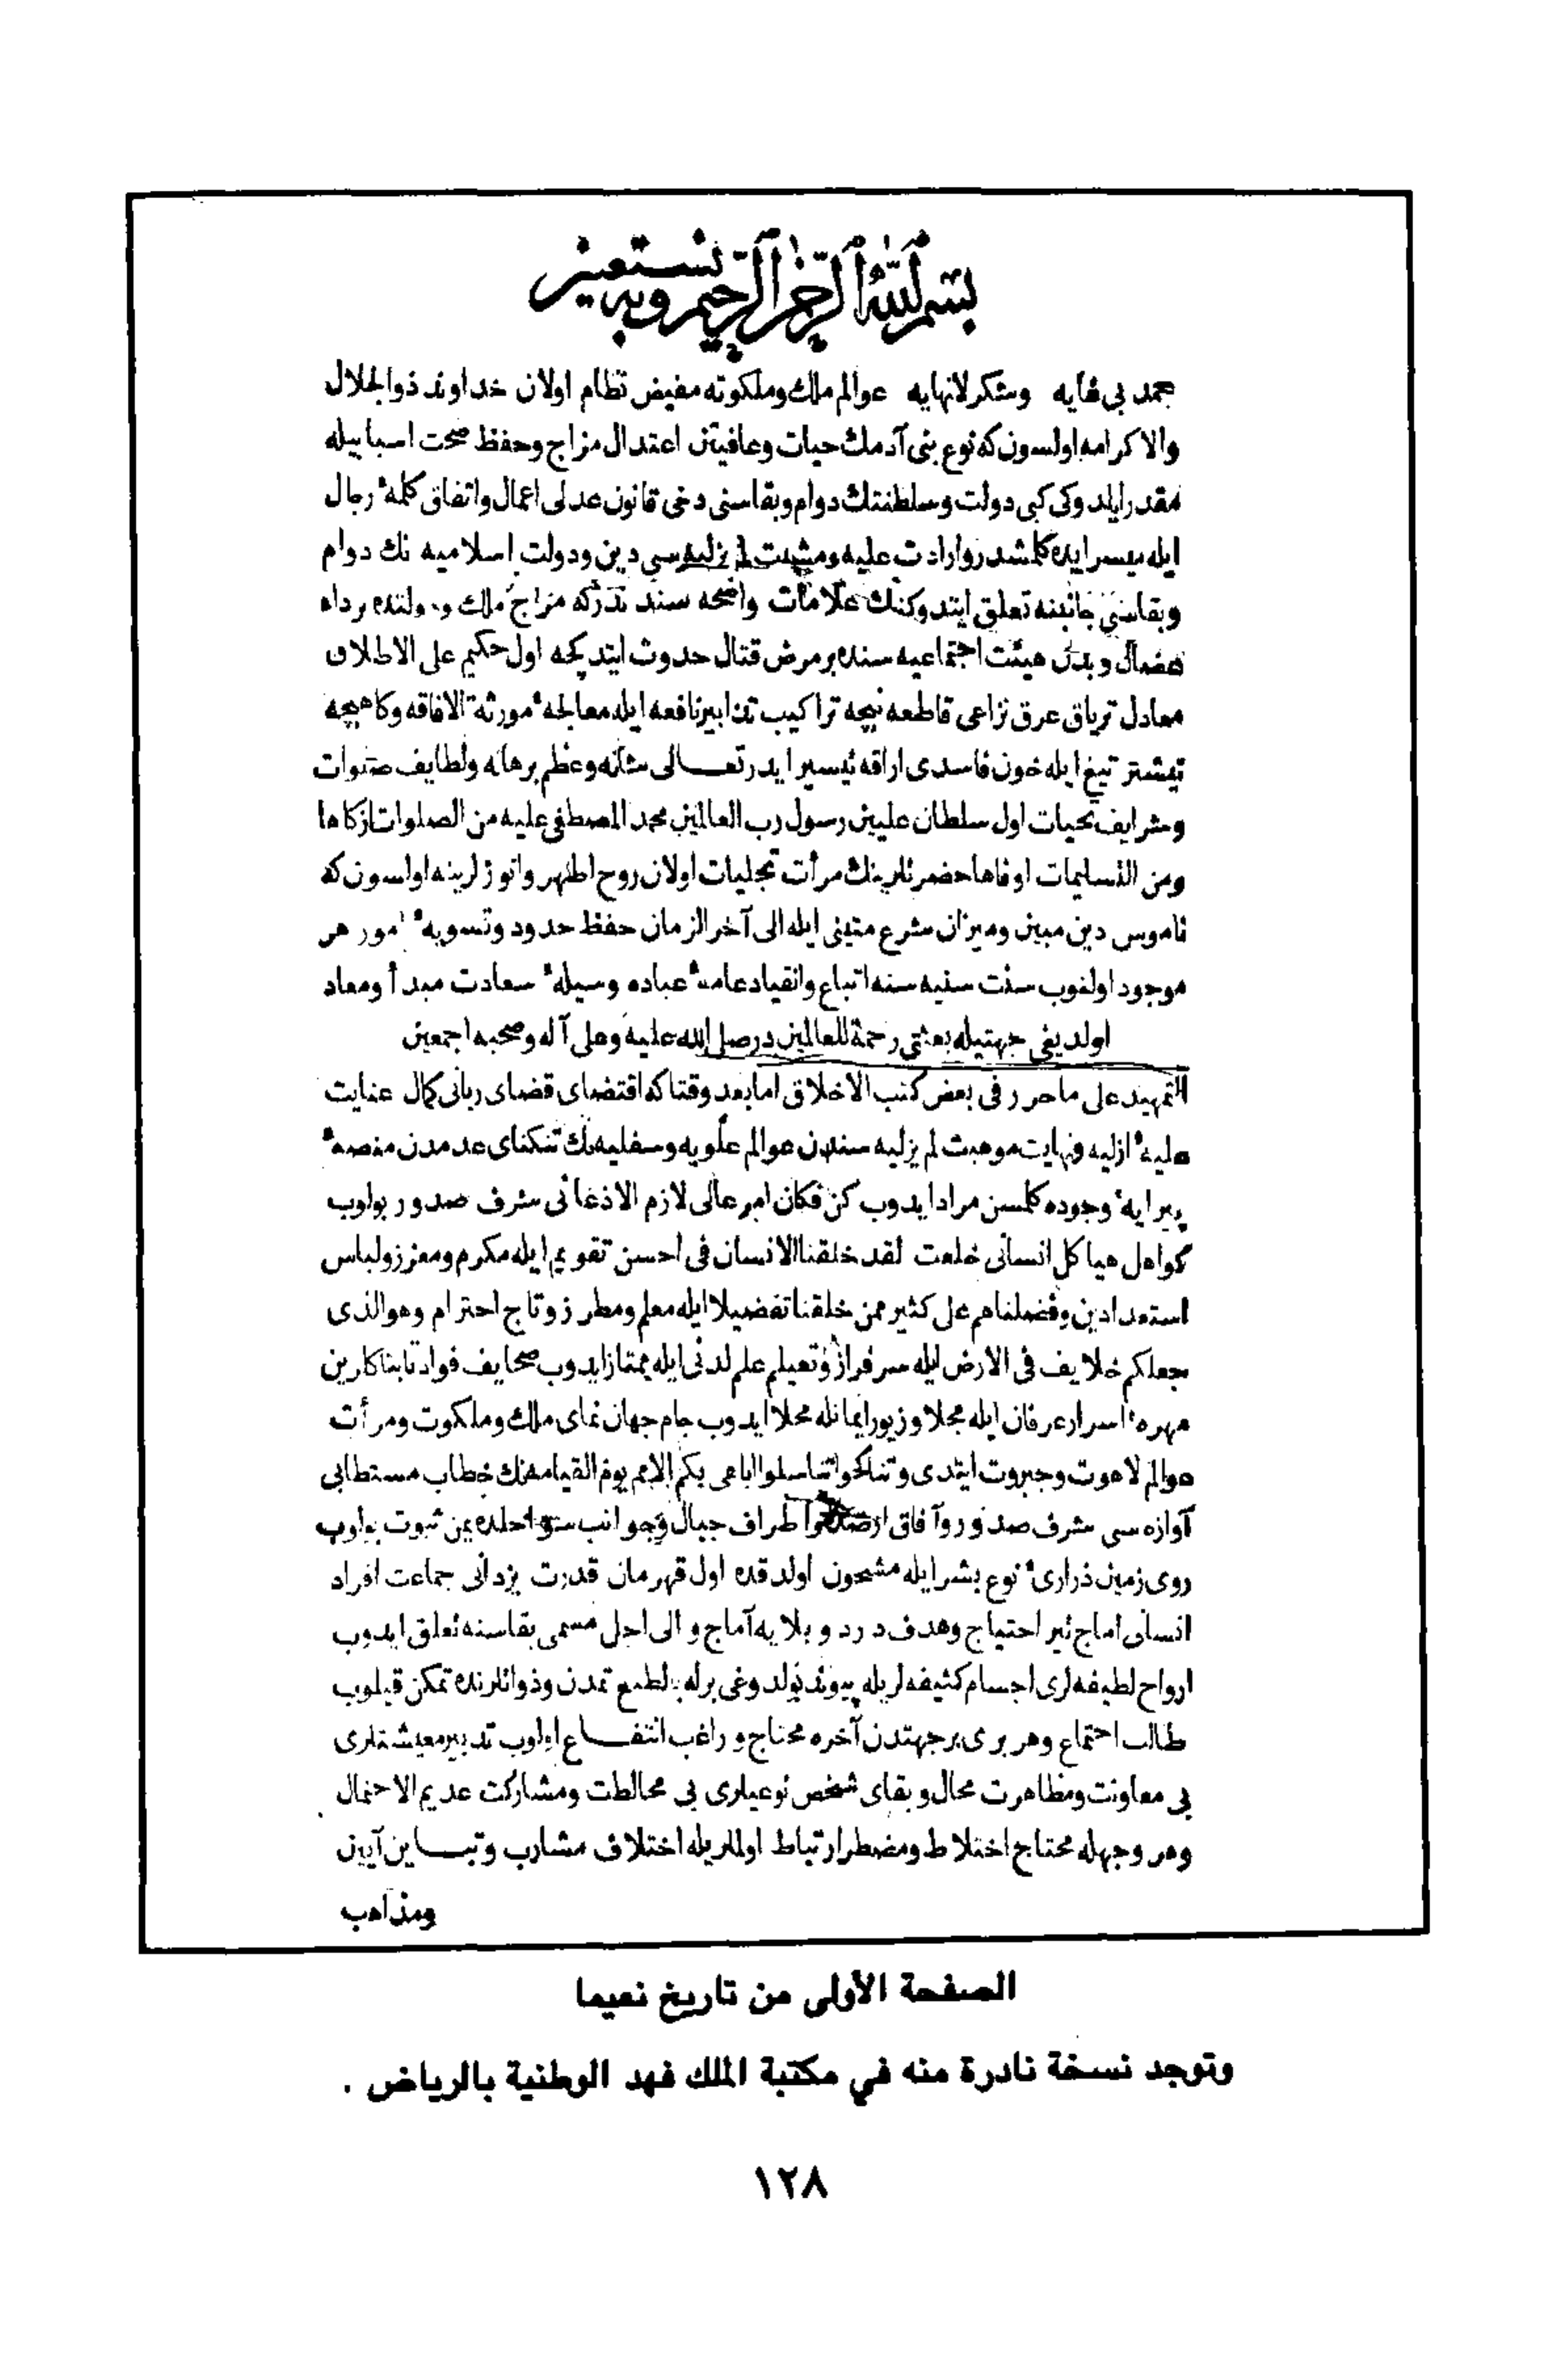 بسم الله الرحمن الرحيم وبه نستعين
حمد بی غایه وشکر لانهایه عوالم ملك وملكوته مفیض نظام اولان خداوند ذوالجلال
والاکرامه اولسون که نوع بنی آدمك حیات وعافیتن اعتدال مزاج وحفظ صحت اسبابیله
مقدر ایلدوکی کبی دولت وسلطنتك دوام وبقاسنی دخی قانون عدلی اعمال واتفاق کلمهٔ رجال
ایله میسر ایده کلمشدر وارادت علیه ومشیت لم یزلیه سی دین ودولت اسلامیه نك دوام
وبقاسی جانبنه تعلق ایتدوکنك علامات واضحه سندندرکه مزاج ملك ودولتده برداء
عضال وبدن هیئت اجتماعیه سنده بر مرض قتال حدوث ایتدکجه اول حکیم علی الاطلاق
معادل تریاق عرق نزاعی قاطعه نیجه تراکیب تدابیر نافعه ایله معالجهٔ مورثة الافاقه وکاهیجه
نیشتر تیغ ایله خون فاسدی اراقه تیسیر ایدر تعالی شانه وعظم برهانه ولطایف صلوات
وشرایف تحیات اول سلطان علیین رسول رب العالمین محمد المصطفی علیه من الصلوات ازکاها
ومن التسلیمات اوفاها حضرتلرینك مرأت تجلیات اولان روح اطهر وانورلرینه اولسون که
ناموس دین مبین ومیزان شرع متینی ایله الی آخر الزمان حفظ حدود وتسویهٔ امور هر
موجود اولنوب سنت سنیه سنه اتباع وانقیاد عامهٔ عباده وسیلهٔ سعادت مبدأ ومعاد
اولدیغی جهتیله بعثتی رحمة للعالمین در صلی الله علیه وعلی آله وصحبه اجمعین
التمهید علی ما حرر فی بعض کتب الاخلاق اما بعد وقتا که اقتضای قضای ربانی کمال عنایت
علیهٔ ازلیه ونهایت موهبت لم یزلیه سندن عوالم علویه وسفلیه نك تنکنای عدمدن منصهٔ
پیرایهٔ وجوده کلمسن مراد ایدوب کن فکان امر عالی لازم الاذعانی شرف صدور بولوب
کواهل هیاکل انسانی خلعت لقد خلقنا الانسان فی احسن تقویم ایله مکرم ومعزز ولباس
استعدادین وفضلناهم علی کثیر ممن خلقنا تفضیلا ایله معلم ومطرز وتاج احترام وهو الذی
جعلکم خلایف فی الارض ایله سرفراز وتعیلم علم لدنی ایله ممتاز ایدوب صحایف فواد تابناکارین
مهرهٔ اسرار عرفان ایله مجلا وزیور ایمانله محلا ایدوب جام جهان نمای ملك وملکوت ومرأت
عوالم لاهوت وجبروت ایتدی وتناکحوا تناسلوا اباهی بکم الامم یوم القیامه نك خطاب مستطابی
آوازه سی شرف صدور وآفاق ارضه واطراف جبال وجوانب سواحلده یمن ثبوت بولوب
روی زمین ذراریٔ نوع بشر ایله مشحون اولدقده اول قهرمان قدرت یزدانی جماعت افراد
انسانی اماج تیر احتیاج وهدف درد وبلایه آماج والی اجل مسمی بقاسنه تعلق ایدوب
ارواح لطیفه لری اجسام کثیفه لریله پیوند تولدوغی برله بالطبع تمدن وذواتلرنده تمکن قیلوب
طالب اجتماع وهر بری بر جهتدن آخره محتاج وراغب انتفاع اولوب تدبیر معیشتلری
بی معاونت ومظاهرت محال وبقای شخص نوعیلری بی مخالطت ومشارکت عدیم الاحتمال
وهر وجهله محتاج اختلاط ومضطر ارتباط اولملریله اختلاف مشارب وتباین آیین
ومذاهب
الصفحة الأولى من تاريخ نعيما
وتوجد نسخة نادرة منه في مكتبة الملك فهد الوطنية بالرياض .
١٢٨